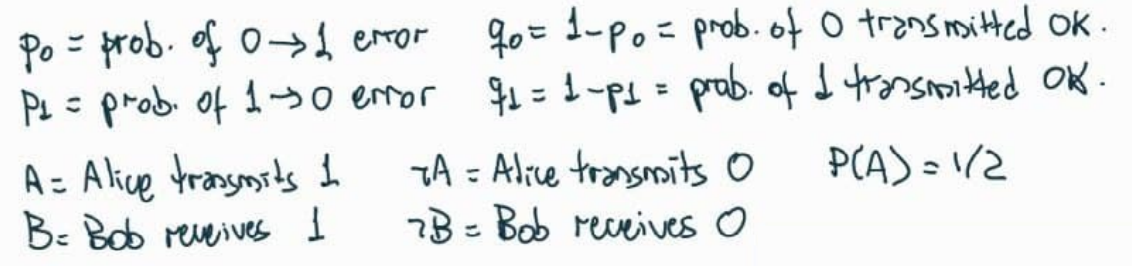 p₀ = prob. of 0→1 error q₀ = 1-p₀ = prob. of 0 transmitted OK.
p₁ = prob. of 1→0 error q₁ = 1-p₁ = prob. of 1 transmitted OK.
A = Alice transmits 1 ¬A = Alice transmits 0 P(A) = 1/2
B = Bob receives 1 ¬B = Bob receives 0